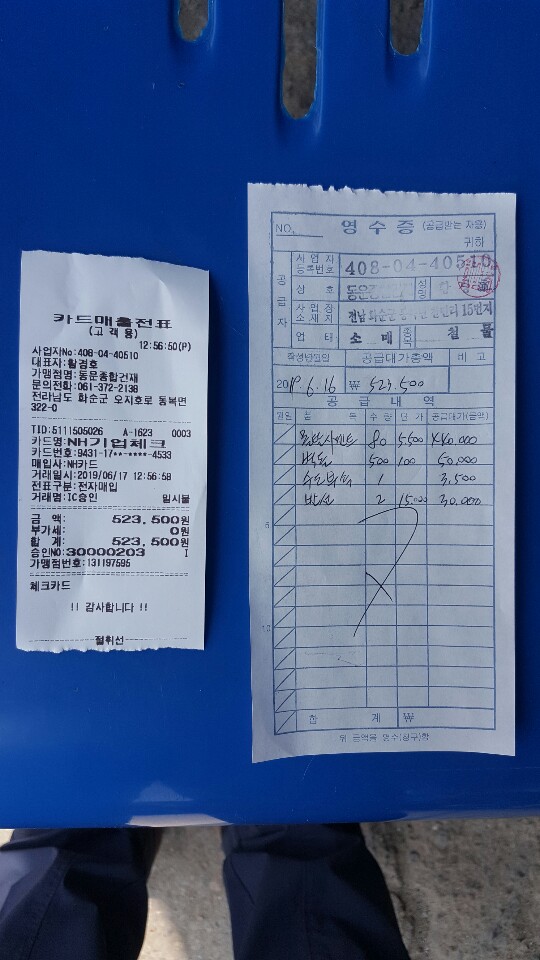 카드매출전표
(고객용)
12:56:50(P)
사업자No:408-04-40510
대표자:황경호
가맹점명:동문종합건재
문의전화:061-372-2138
전라남도 화순군 오지호로 동복면
322-0
TID:5111505026 A-1623 0003
카드명:NH기업체크
카드번호:9431-17**-****-4533
매입사:NH카드
거래일시:2019/06/17 12:56:58
전표구분:전자매입
거래명:IC승인 일시불
금 액: 523,500원
부가세: 0원
합 계: 523,500원
승인NO:30000203 I
가맹점번호:131197595
체크카드
!! 감사합니다 !!
절취선
NO.
영수증 (공급받는 자용)
귀하
공급자
사업자등록번호 408-04-40510
상호 성명
사업장소재지 전남 화순군 15번지
업태 소매 종목 철물
작성년월일 공급대가총액 비고
20 6.16 ₩ 523.500
공급내역
월일 품목 수량 단가 공급대가(금액)
80 5500 440.000
벽돌 500 100 50.000
1 3,500
2 15000 30.000
5
10
합계 ₩
위 금액을 영수(청구)함